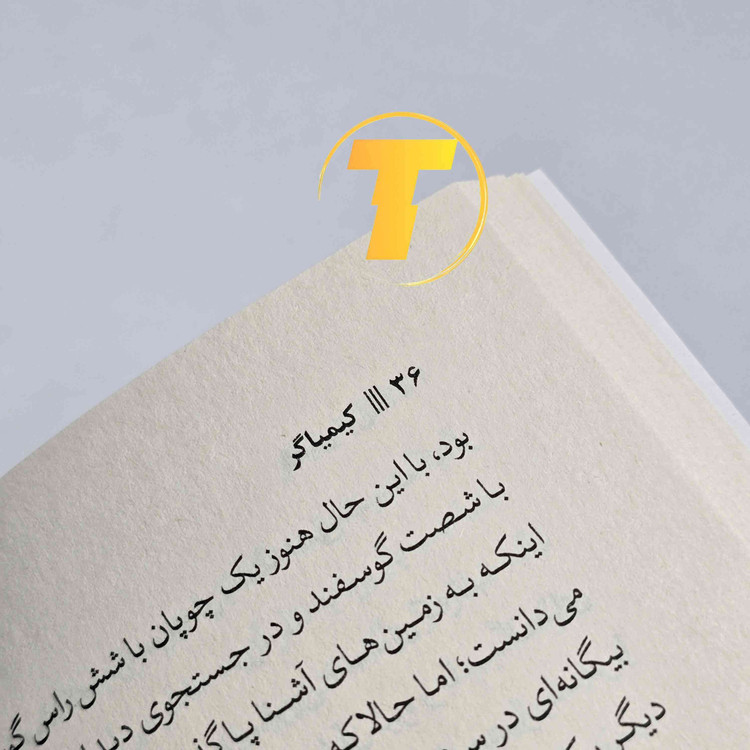 T
۳۶ ||| کیمیاگر
بود، با این حال هنوز یک چوپان با شش راس
با شصت گوسفند و در جستجوی
اینکه به زمین‌های آشنا
می‌دانست؛ اما حالا که
بیگانه‌ای در
دیگر